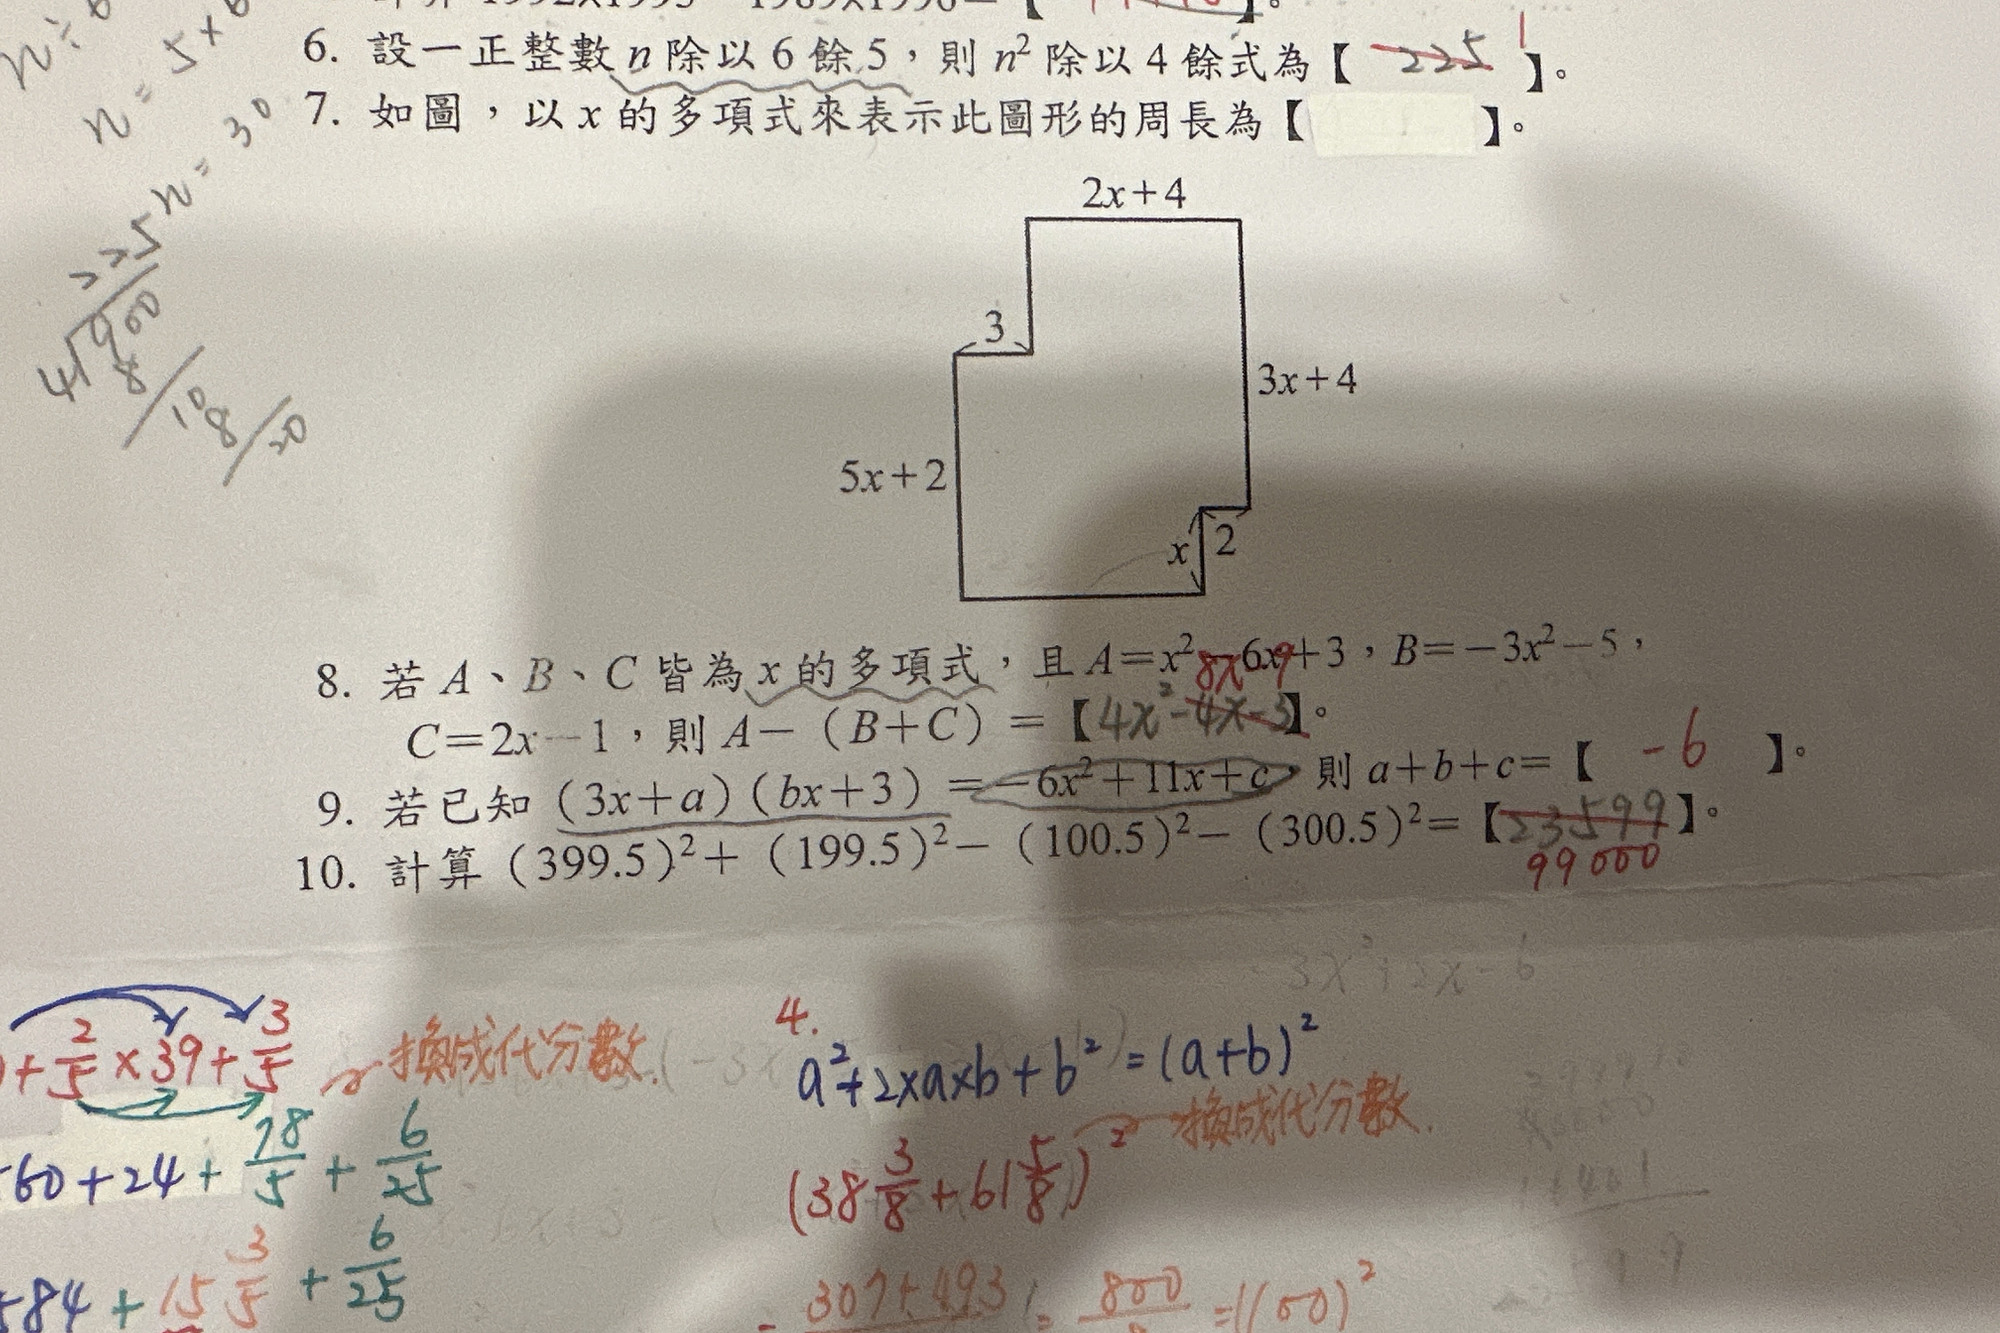 6. 設一正整數 n 除以 6 餘 5,則 n² 除以 4 餘式為【 225 1 】。
7. 如圖,以 x 的多項式來表示此圖形的周長為【 】。
n = 30
225
4 900
8
10
8
20
2x+4
3
3x+4
5x+2
x 2
8. 若 A、B、C 皆為 x 的多項式,且 A=x²-6x+3,B=-3x²-5,
8x 9
C=2x-1,則 A-(B+C)=【4x²-4x-3】。
9. 若已知 (3x+a)(bx+3)=-6x²+11x+c,則 a+b+c=【 -6 】。
10. 計算 (399.5)²+(199.5)²-(100.5)²-(300.5)²=【23599】。
99000
3x²+2x-6
+2/5×39+3/5 換成代分數.
60+24+78/5+6/25
584+15 3/5+6/25
4.
a²+2×a×b+b²=(a+b)²
(38 3/8+61 5/8)² 換成代分數.
307+493 = 800 =(100)²